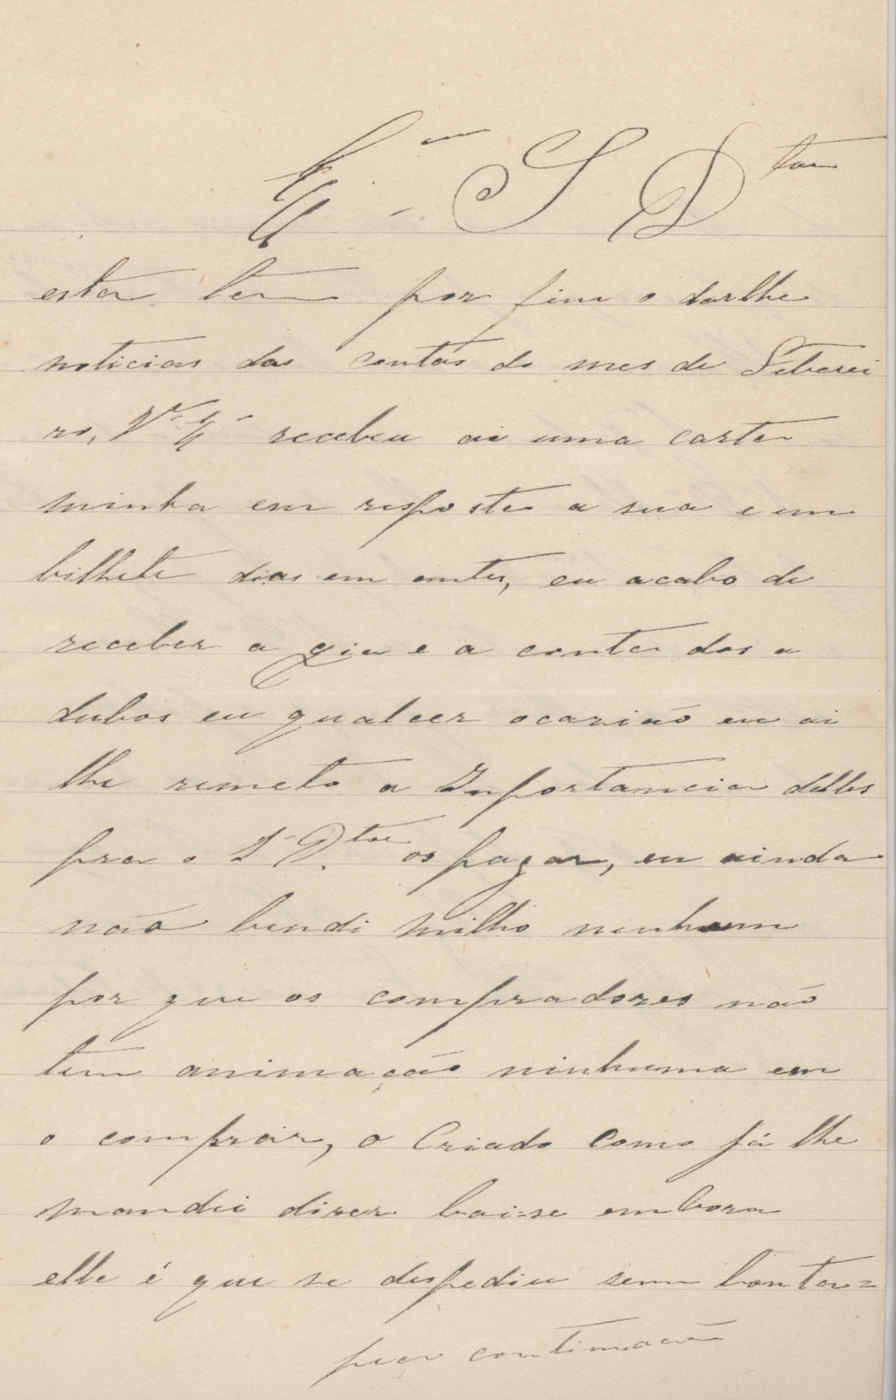 Ex.ª S D.tor
esta tem por fim o darlhe
noticias das contas do mes de Feberei
ro, V.ª Ex.ª recebeu ai uma carta
minha em resposta a sua e um
bilhete dias em antes, eu acabo de
receber a gia e a conta dos a
dubos eu qualcer ocazião eu ai
lhe remeto a Inportancia delles
pra o S D.tor os pagar, eu ainda
não bendi milho nenhum
por que os compradores não
tem animação ninhuma em
o comprar, o Criado como já lhe
mandei dizer bai-se embora
elle é que se despediu sem bonta=
continuação